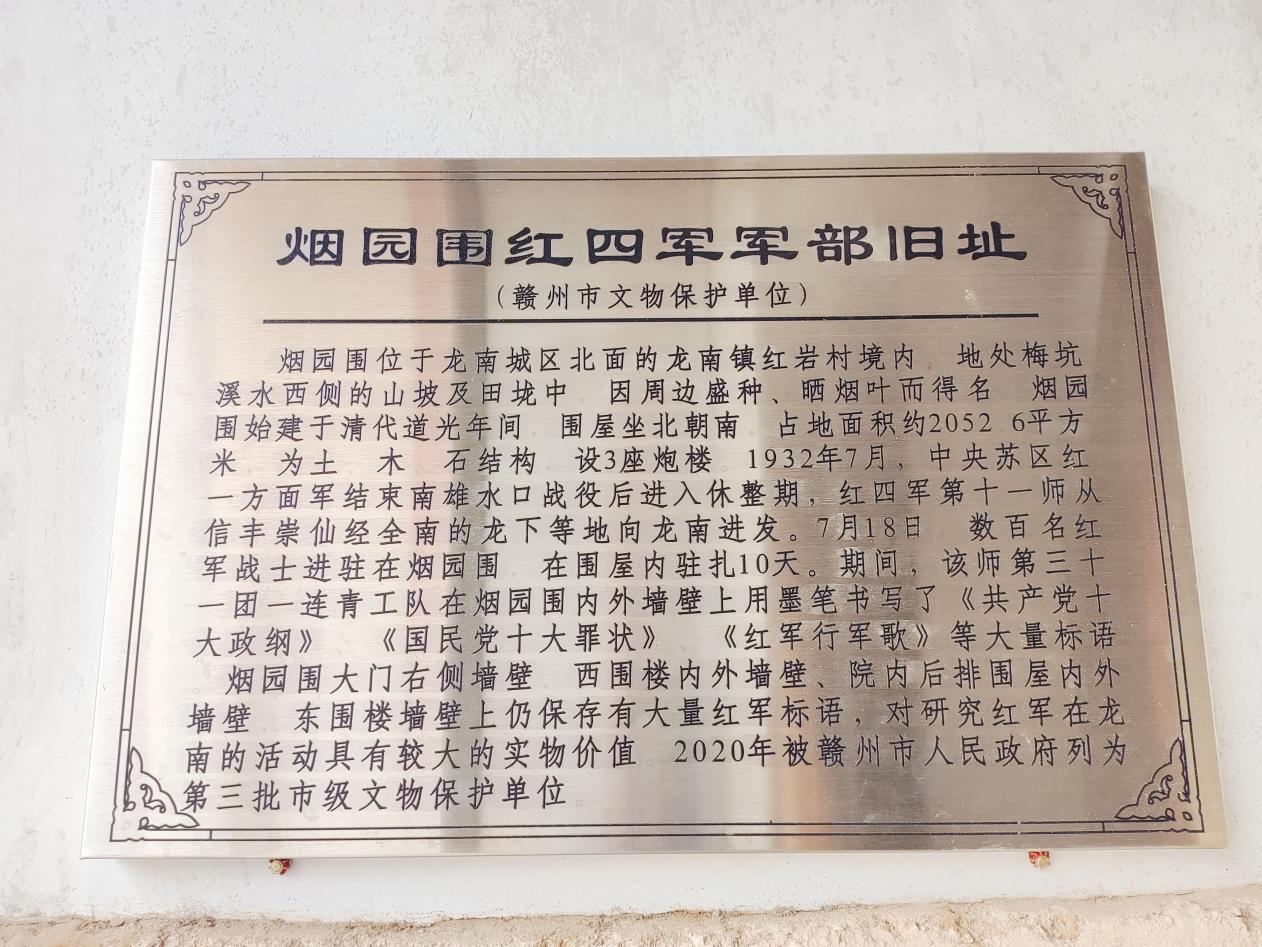 烟园围红四军军部旧址
（赣州市文物保护单位）
烟园围位于龙南城区北面的龙南镇红岩村境内 地处梅坑
溪水西侧的山坡及田垅中 因周边盛种、晒烟叶而得名 烟园
围始建于清代道光年间 围屋坐北朝南 占地面积约2052 6平方
米 为土、木、石结构 设3座炮楼。1932年7月，中央苏区红
一方面军结束南雄水口战役后进入休整期，红四军第十一师从
信丰崇仙经全南的龙下等地向龙南进发。7月18日 数百名红
军战士进驻在烟园围 在围屋内驻扎10天。期间，该师第三十
一团一连青工队在烟园围内外墙壁上用墨笔书写了《共产党十
大政纲》 《国民党十大罪状》 《红军行军歌》等大量标语
烟园围大门右侧墙壁 西围楼内外墙壁、院内后排围屋内外
墙壁 东围楼墙壁上仍保存有大量红军标语，对研究红军在龙
南的活动具有较大的实物价值 2020年被赣州市人民政府列为
第三批市级文物保护单位